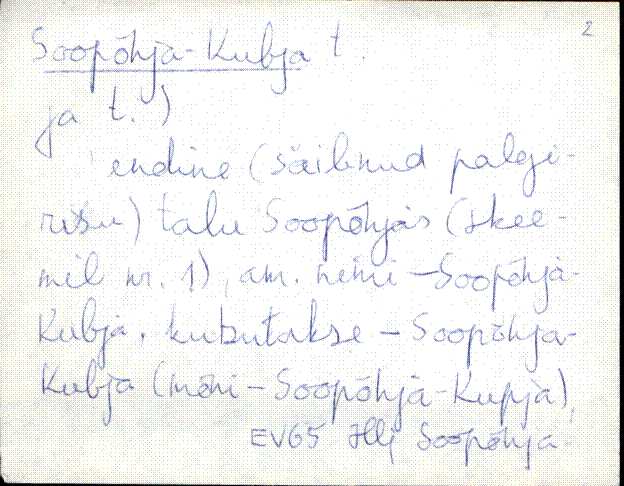 2
Soopõhja-Kubja t.
ja t.)
endine (säilinud palgi-
risu) talu Soopõhjas (skee-
mil nr. 1), am. nimi – Soopõhja-
Kubja. kutsutakse – Soopõhja-
Kubja (mõni – Soopõhja-Kupja),
EV65 Hlj Soopõhja